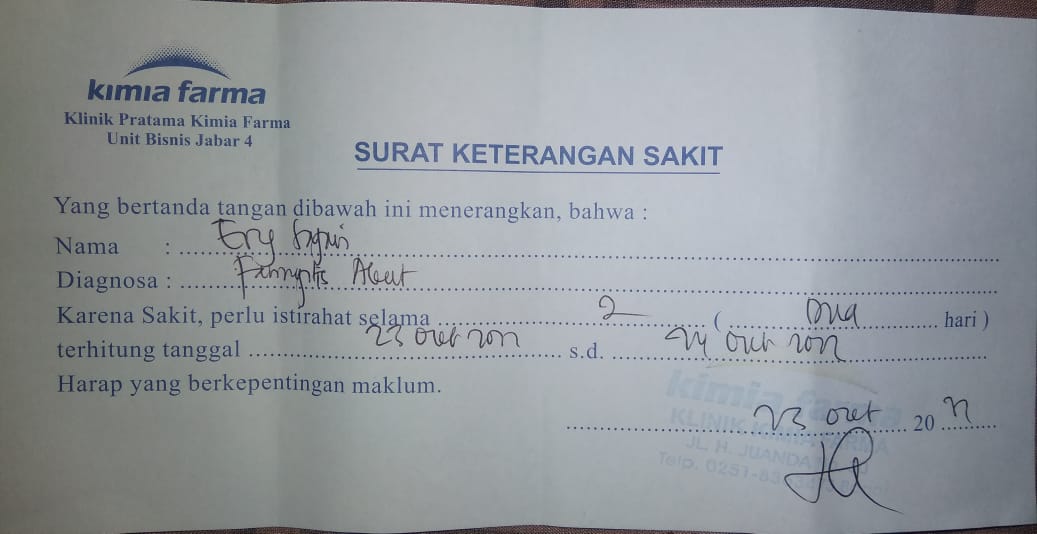 kimia farma
Klinik Pratama Kimia Farma
Unit Bisnis Jabar 4
SURAT KETERANGAN SAKIT
Yang bertanda tangan dibawah ini menerangkan, bahwa :
Nama : Ery
Diagnosa : Akut
Karena Sakit, perlu istirahat selama 2 ( Dua hari )
terhitung tanggal 23 okt 2022 s.d. 24 okt 2022
Harap yang berkepentingan maklum.
23 okt 20 22
kimia farma
KLINIK KIMIA FARMA
JL. H. JUANDA
Telp. 0251-